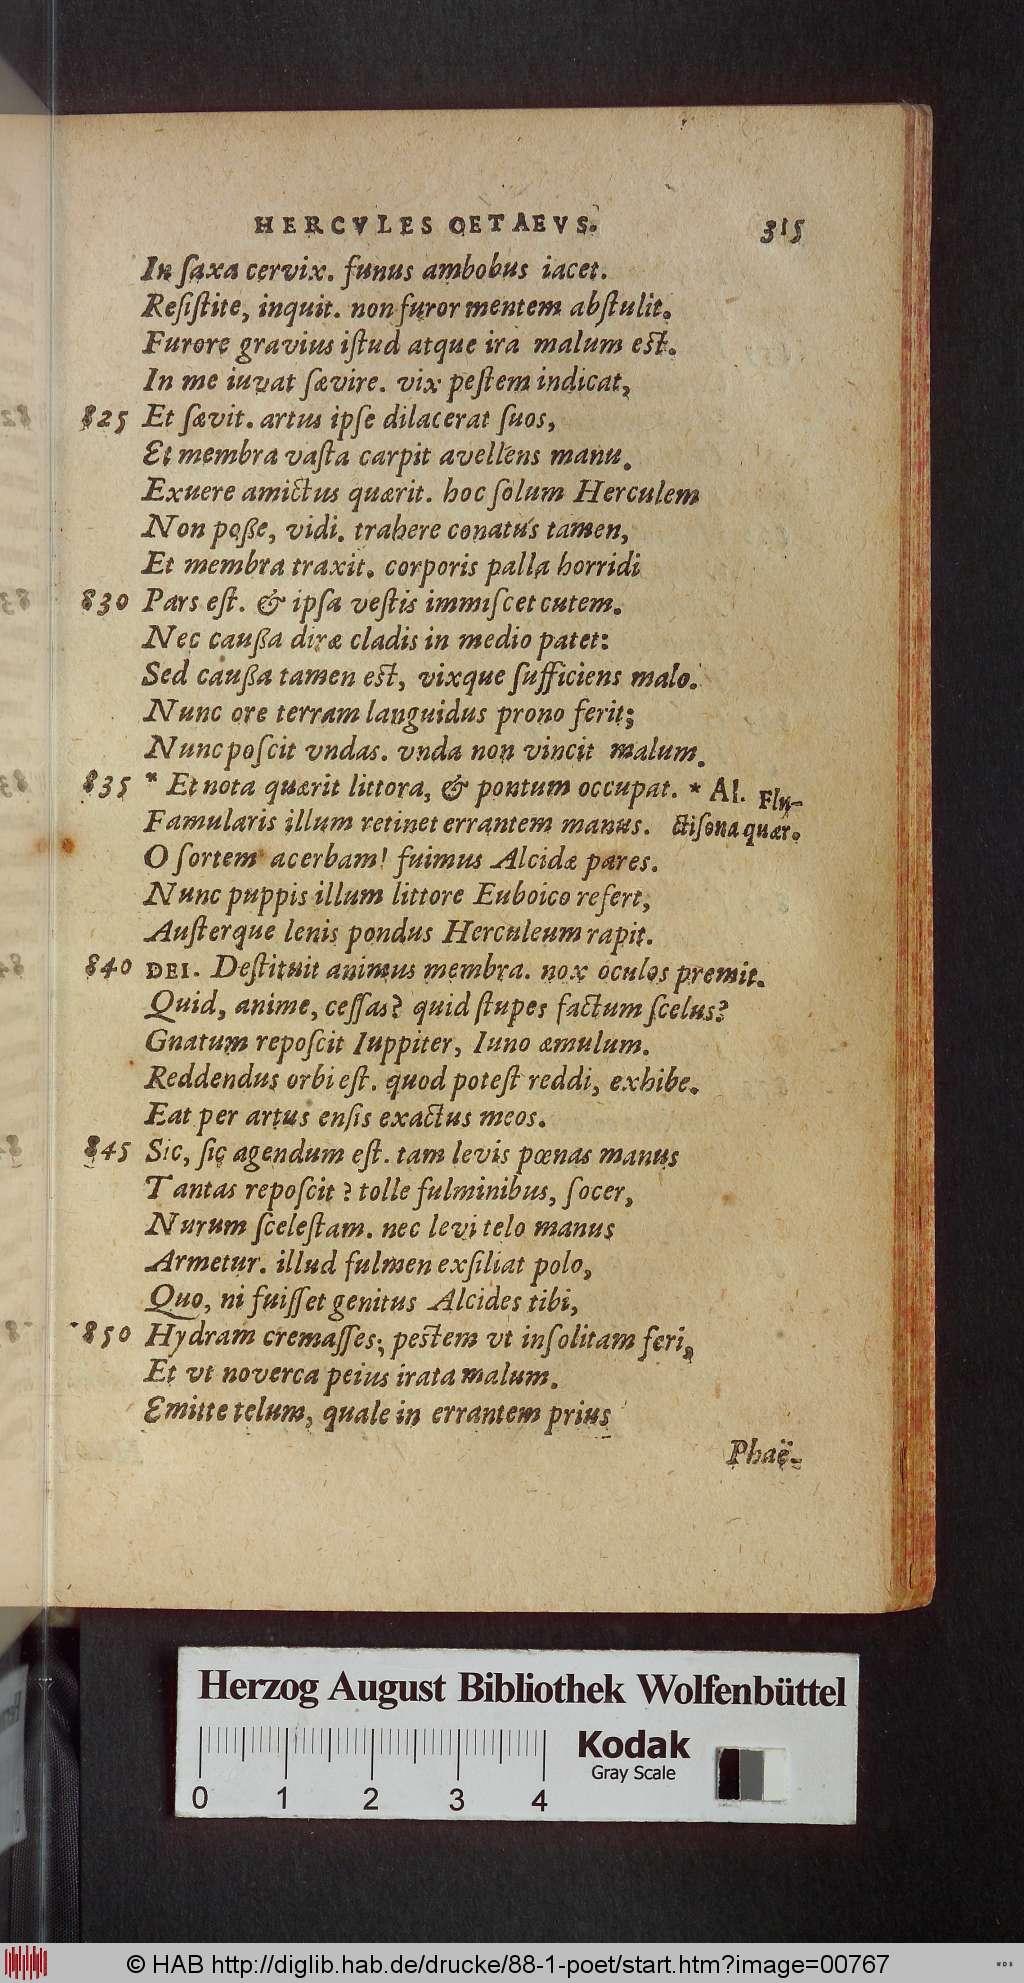 HERCVLES OETAEVS. 315
In ſaxa cervix. funus ambobus iacet.
Reſiſtite, inquit. non furor mentem abſtulit.
Furore gravius iſtud atque ira malum eſt.
In me iuvat ſævire. vix peſtem indicat,
825 Et ſævit. artus ipſe dilacerat ſuos,
Et membra vaſta carpit avellens manu.
Exuere amictus quærit. hoc ſolum Herculem
Non poße, vidi. trahere conatus tamen,
Et membra traxit. corporis palla horridi
830 Pars eſt. & ipſa veſtis immiſcet cutem.
Nec caußa diræ cladis in medio patet:
Sed caußa tamen eſt, vixque ſufficiens malo.
Nunc ore terram languidus prono ferit;
Nunc poſcit vndas. vnda non vincit malum.
835 * Et nota quærit littora, & pontum occupat. * Al. Flu-
Famularis illum retinet errantem manus. ctiſona quær.
O ſortem acerbam! fuimus Alcidæ pares.
Nunc puppis illum littore Euboico refert,
Auſterque lenis pondus Herculeum rapit.
840 DEI. Deſtituit animus membra. nox oculos premit.
Quid, anime, ceſſas? quid ſtupes factum ſcelus?
Gnatum repoſcit Iuppiter, Iuno æmulum.
Reddendus orbi eſt. quod poteſt reddi, exhibe.
Eat per artus enſis exactus meos.
845 Sic, ſic agendum eſt. tam levis pœnas manus
Tantas repoſcit? tolle fulminibus, ſocer,
Nurum ſceleſtam. nec levi telo manus
Armetur. illud fulmen exſiliat polo,
Quo, ni fuiſſet genitus Alcides tibi,
850 Hydram cremaſſes; peſtem vt inſolitam feri,
Et vt noverca peius irata malum.
Emitte telum, quale in errantem prius
Phaë-
Herzog August Bibliothek Wolfenbüttel
Kodak
Gray Scale
0 1 2 3 4
© HAB http://diglib.hab.de/drucke/88-1-poet/start.htm?image=00767